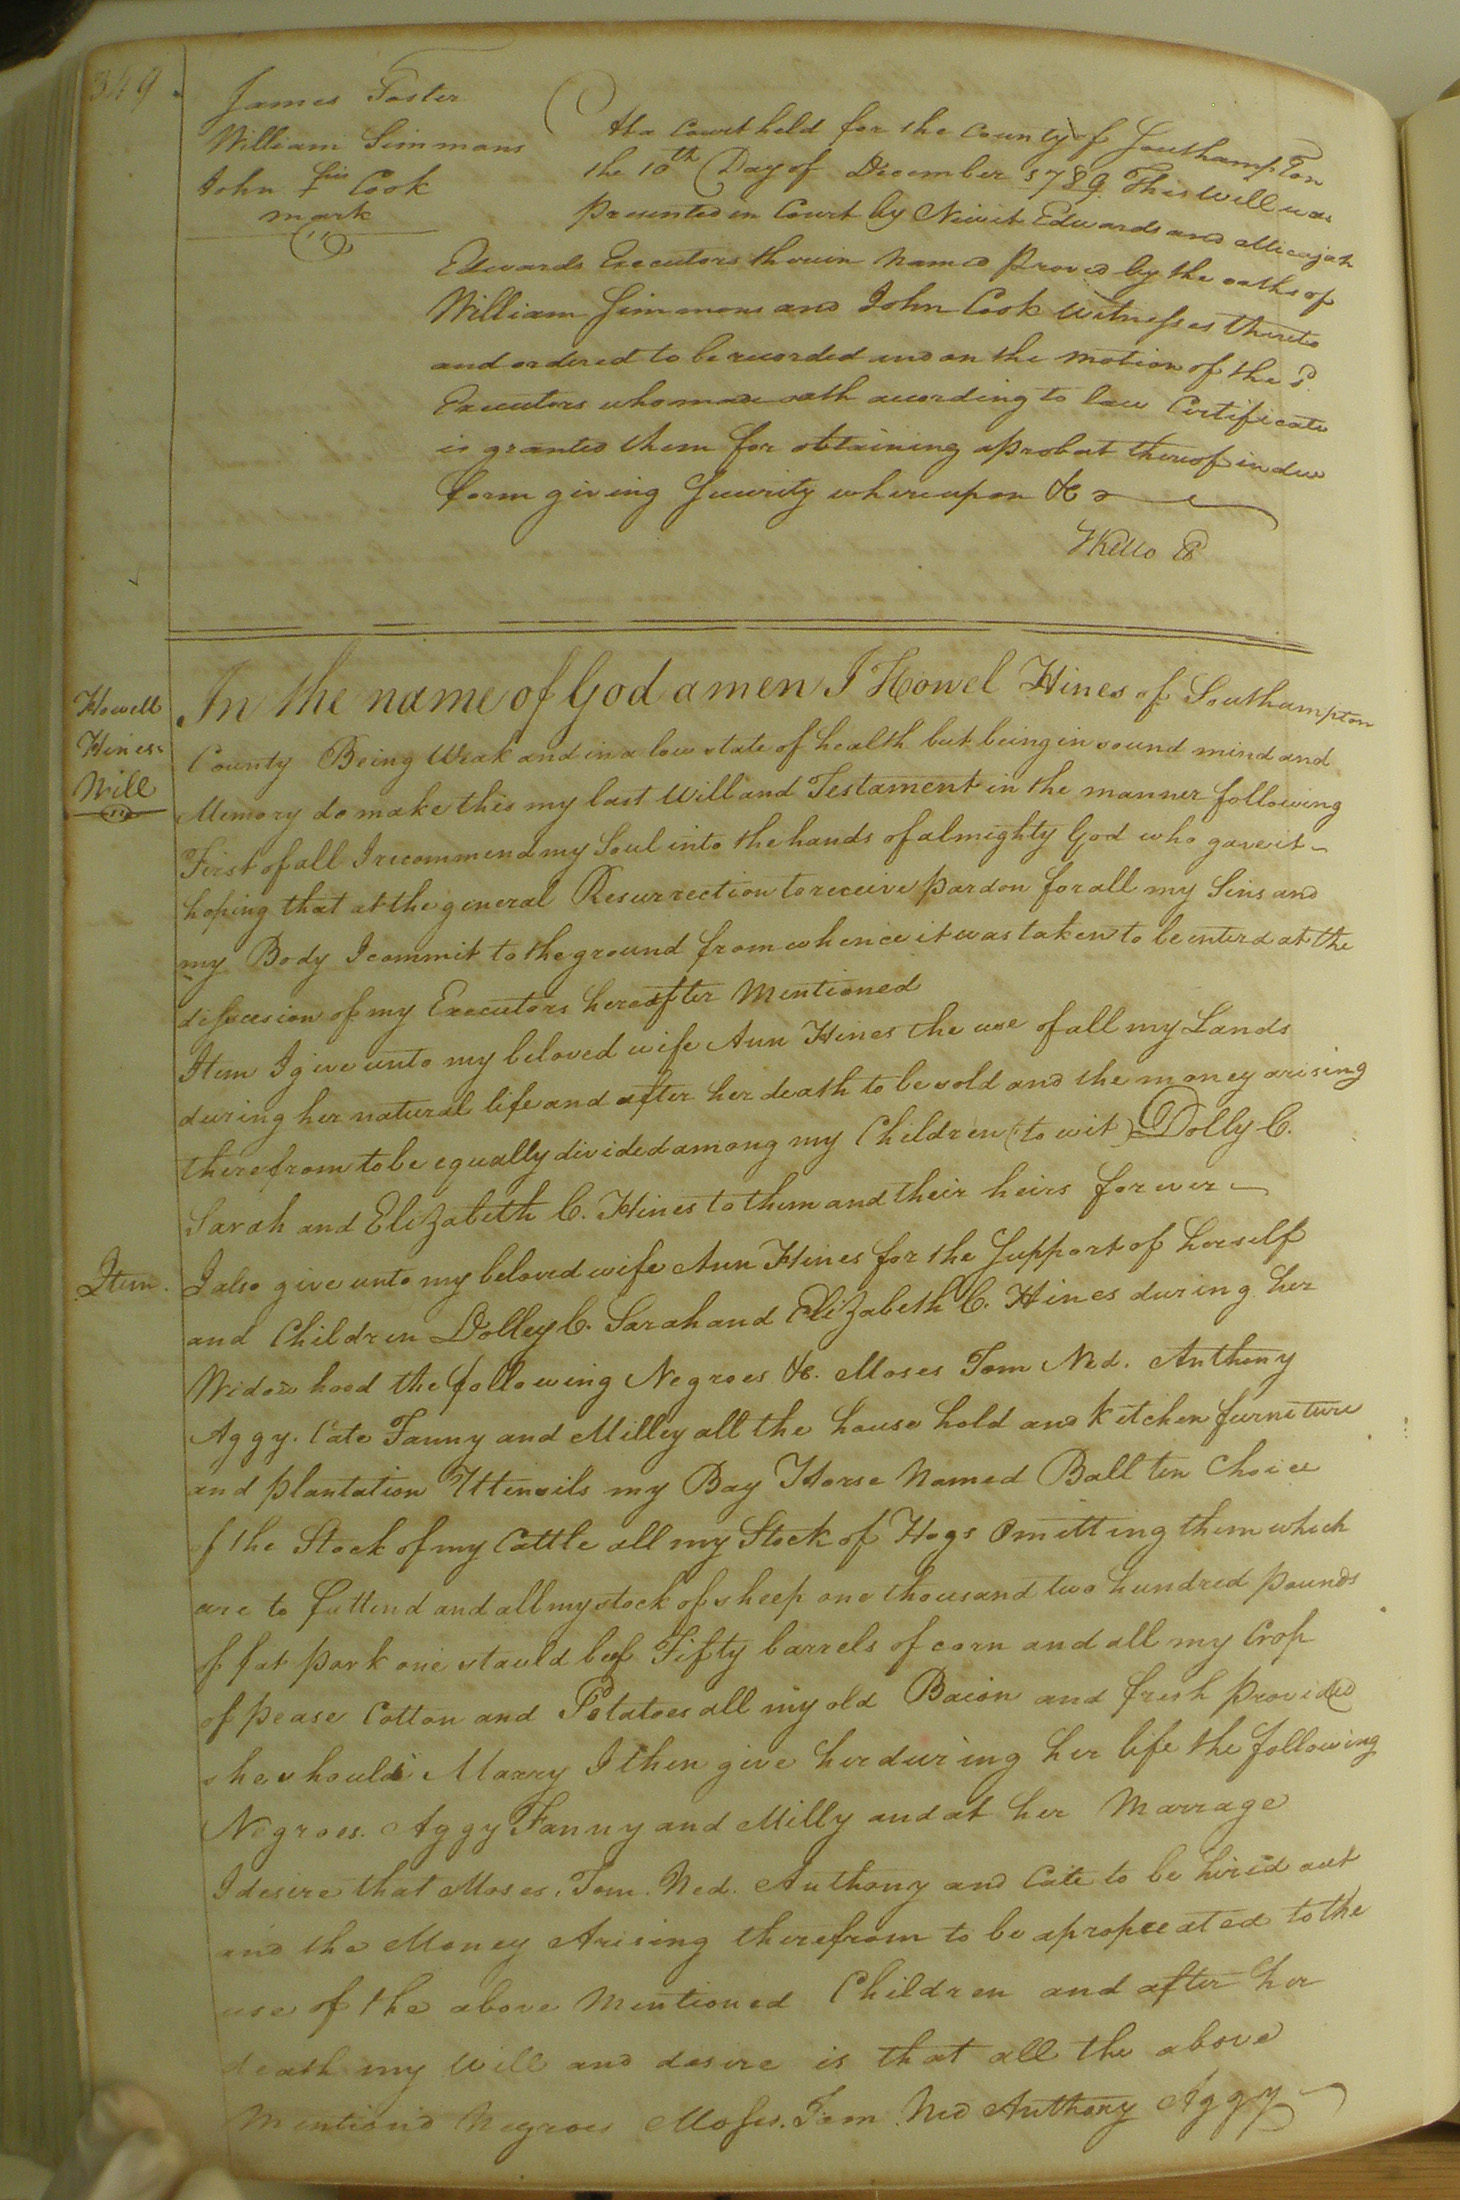 349.
James Foster
William Simmons
John his Cook
mark
At a Court held for the County of Southampton
the 10th Day of December 1789. This Will was
presented in Court by Newit Edwards and Micajah
Edwards Executors therein Named proved by the oaths of
William Simmons and John Cook Witnesses thereto
and ordered to be recorded and on the motion of the sd
Executors who made oath according to law Certificate
is granted them for obtaining a probat thereof in due
form giving Security whereupon &c
Howell
Hines's
Will
In the name of God amen I Howel Hines of Southampton
County Being Weak and in a low state of health but being in sound mind and
Memory do make this my last Will and Testament in the manner following
First of all I recommend my Soul into the hands of almighty God who gave it
hoping that at the general Resurrection to receive pardon for all my Sins and
my Body I commit to the ground from whence it was taken to be interd at the
of my Executors hereafter Mentioned
Item I give unto my beloved wife Ann Hines the use of all my Lands
during her natural life and after her death to be sold and the money arising
therefrom to be equally divided among my Children (to wit) Dolly C.
Sarah and Elizabeth C. Hines to them and their heirs forever
Item. I also give unto my beloved wife Ann Hines for the Support of herself
and Children Dolley C. Sarah and Elizabeth C. Hines during her
Widow hood the following Negroes &c. Moses Tom Ned. Anthony
Aggy. Cate Fanny and Milley all the house hold and kitchen furniture
and plantation Uttensils my Bay Horse Named Ball ten Choice
of the Stock of my Cattle all my Stock of Hogs Omitting them which
are to fattend and all my stock of sheep one thousand two hundred pounds
of fat pork one stauld beef Fifty barrels of corn and all my Crop
of pease Cotton and Potatoes all my old Bacon and fresh provided
she should Marry I then give her during her life the following
Negroes. Aggy Fanny and Milly and at her Marrage
I desire that Moses. Tom. Ned. Anthony and Cate to be hired out
and the Money Arising therefrom to be apropreated to the
use of the above Mentioned Children and after her
death my Will and desire is that all the above
Mentiond Negroes Moses. Tom Ned Anthony Aggy